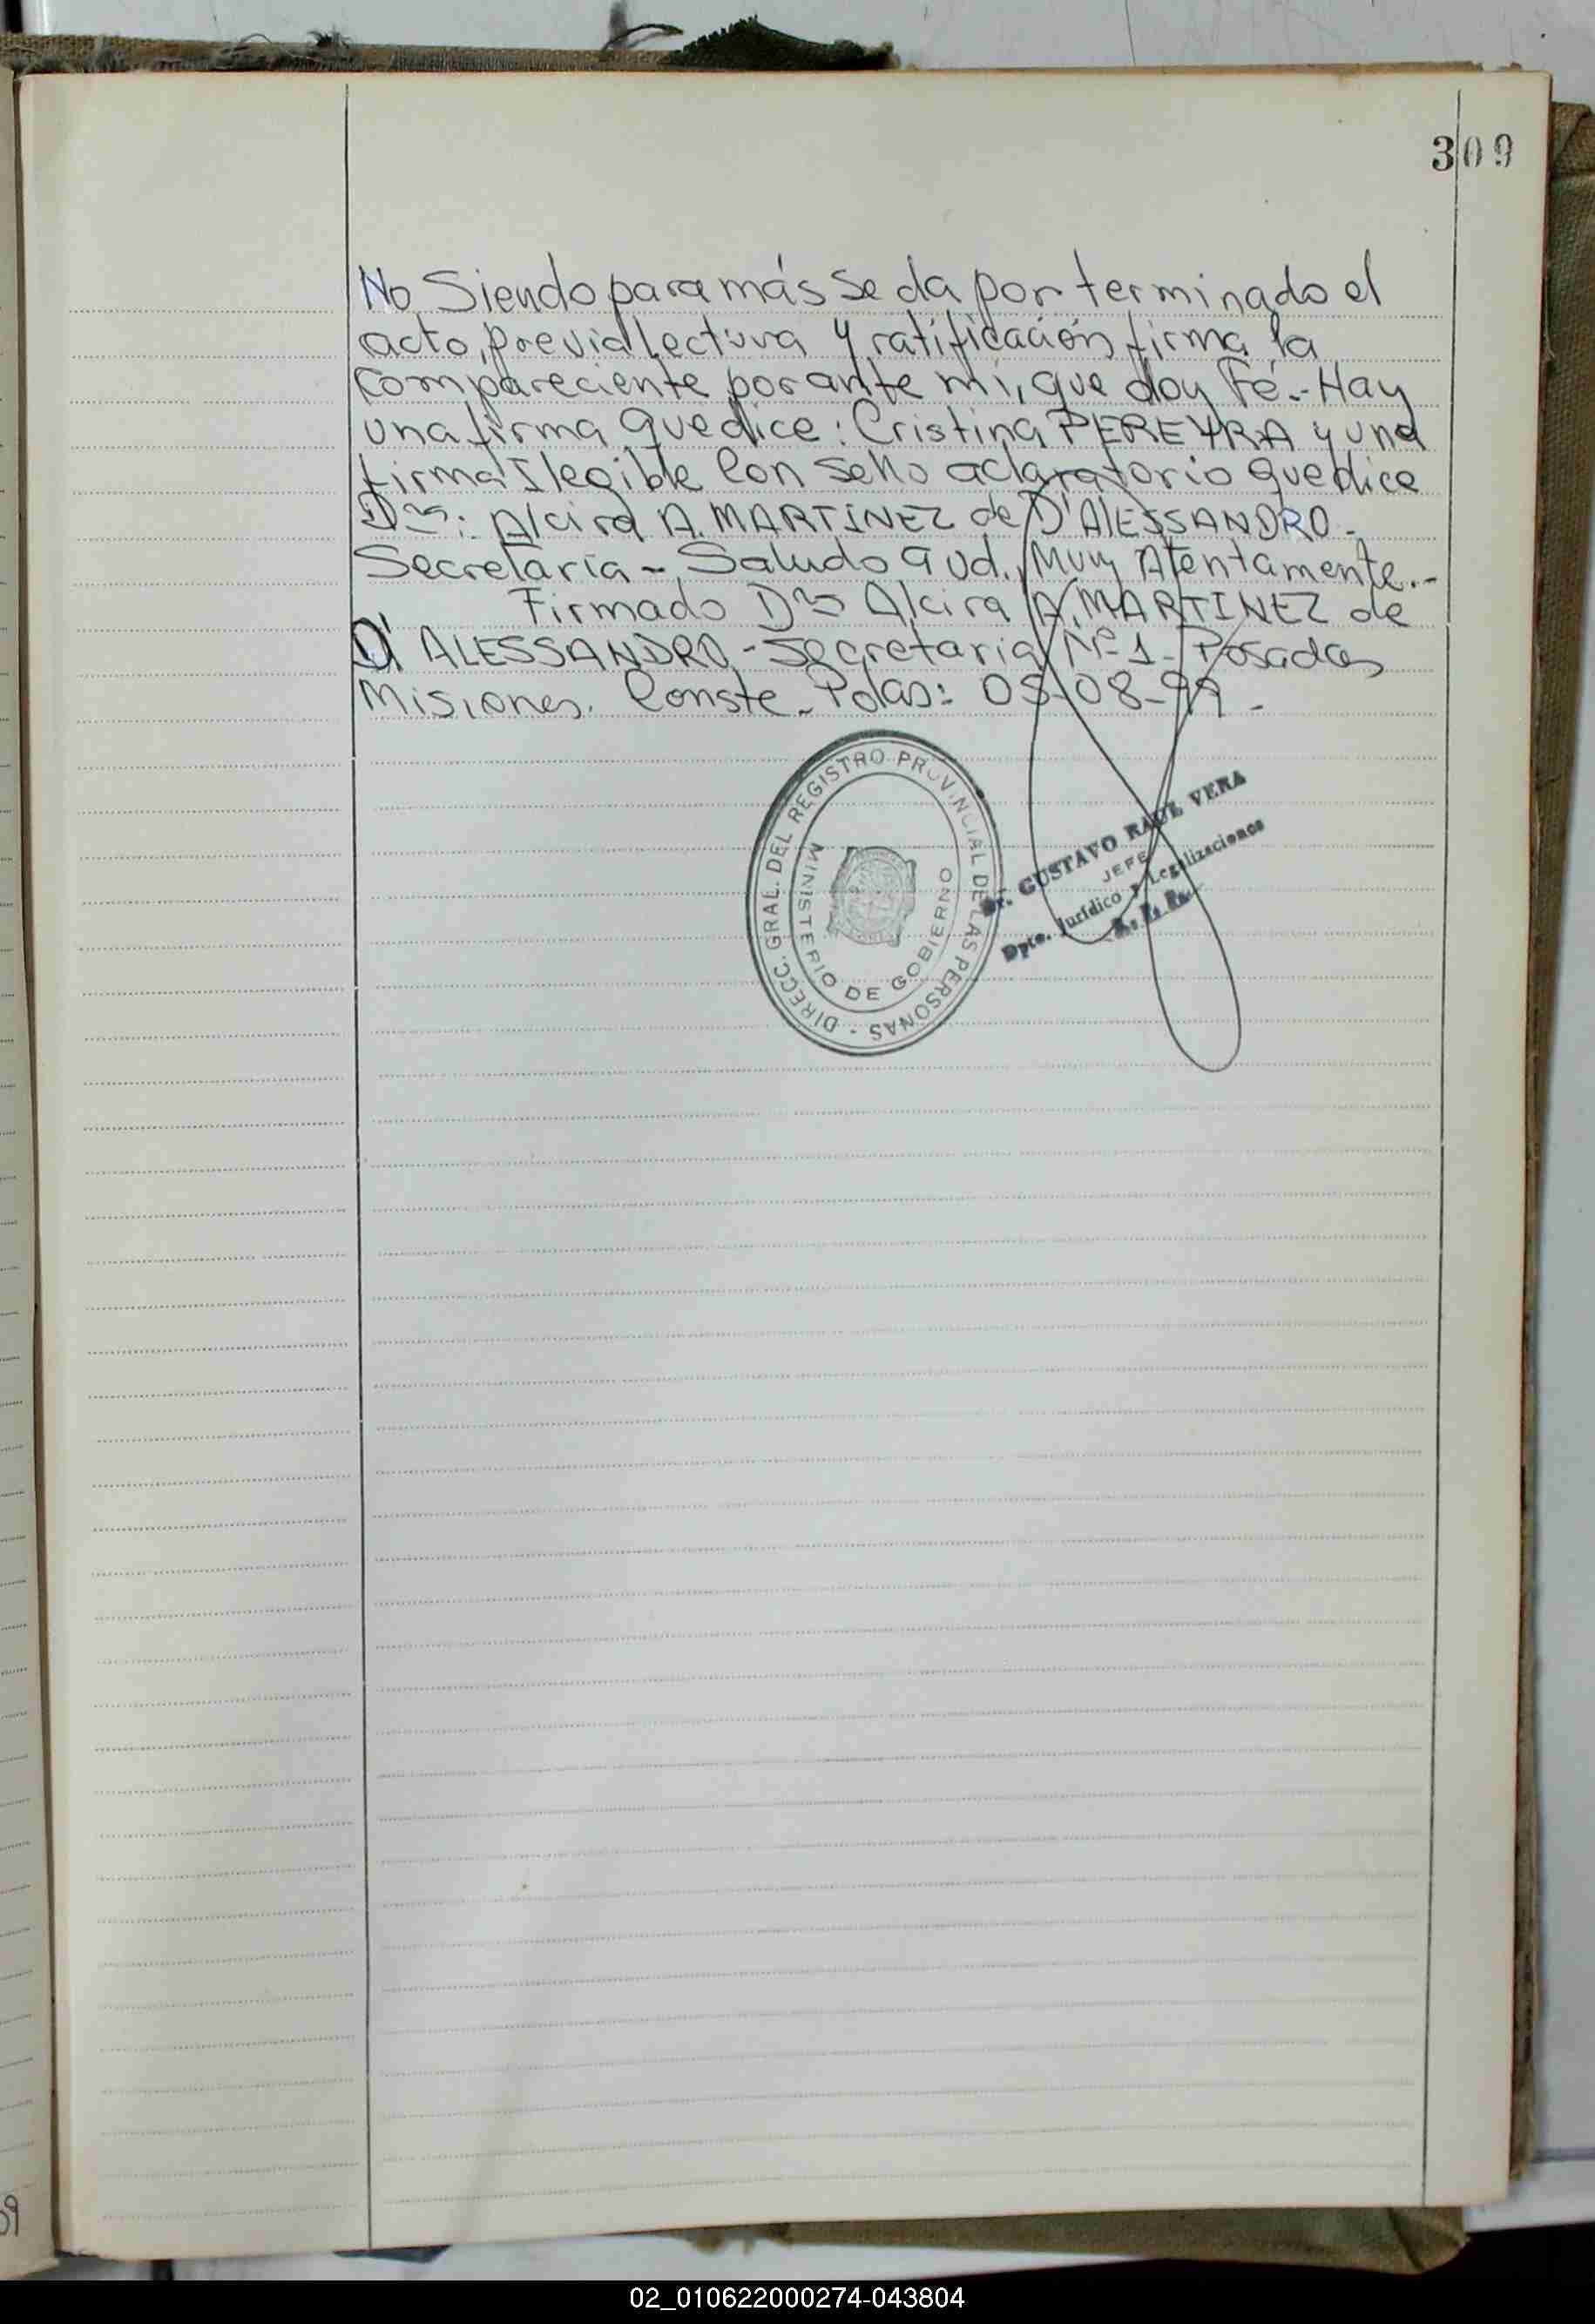 309
No Siendo para más se da por terminado el
acto, previa lectura y ratificación firma la
compareciente por ante mi, que doy Fé.- Hay
una firma que dice: Cristina PEREYRA y una
firma Ilegible Con sello aclaratorio que dice
Dra: Alcira A. MARTINEZ de D'ALESSANDRO-
Secretaria - Saludo a Ud. Muy Atentamente.-
Firmado Dra Alcira A. MARTINEZ de
D'ALESSANDRO - Secretaria Nº 1 - Posadas
Misiones. Conste. Pdas: 05-08-99-
DIRECC. GRAL. DEL REGISTRO PROVINCIAL DE LAS PERSONAS -
MINISTERIO DE GOBIERNO
Dr. GUSTAVO RAUL VERA
JEFE
Dpto. Jurídico y Legalizaciones
69
02_010622000274-043804